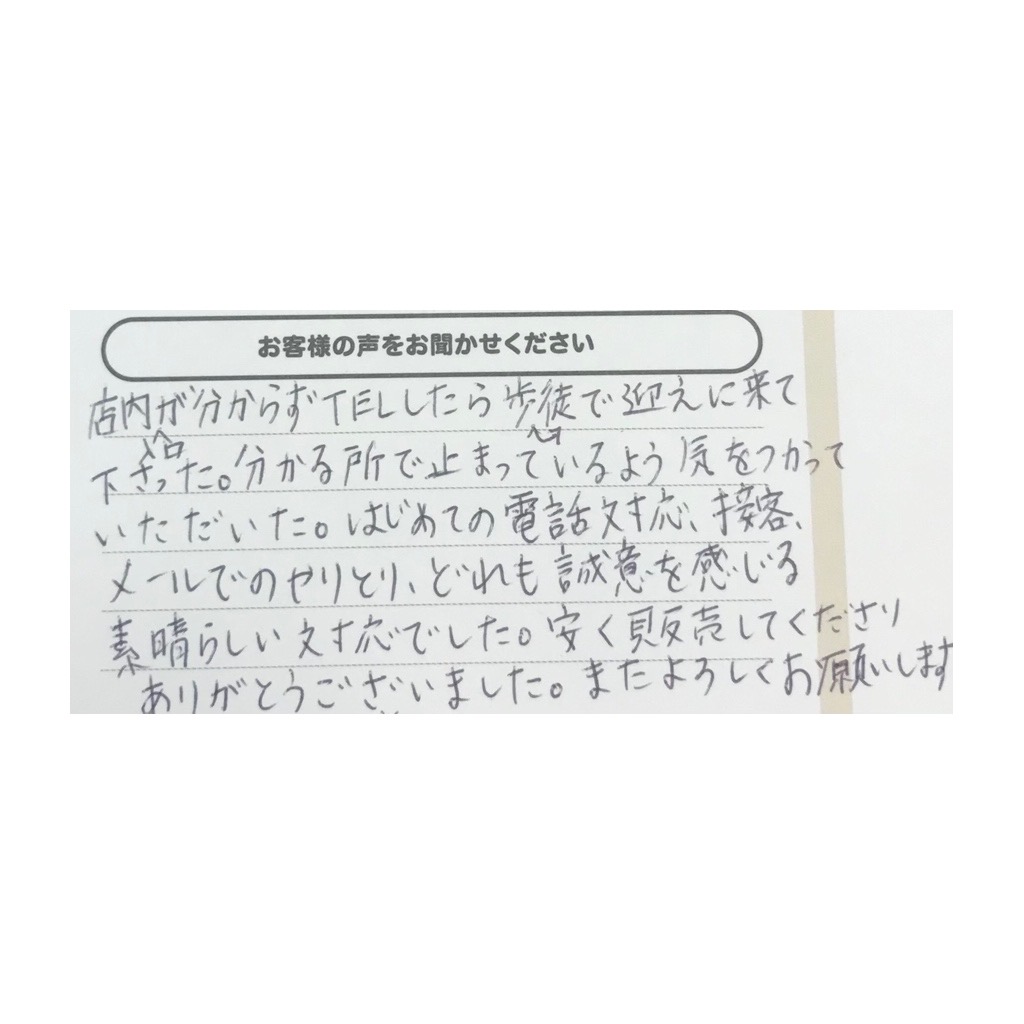 お客様の声をお聞かせください
店内入口が分からずTELしたら歩徒で迎えに来て
下さった。分かる所で止まっているよう気をつかって
いただいた。はじめての電話対応、接客、
メールでのやりとり、どれも誠意を感じる
素晴らしい対応でした。安く販売してくださり
ありがとうございました。またよろしくお願いします